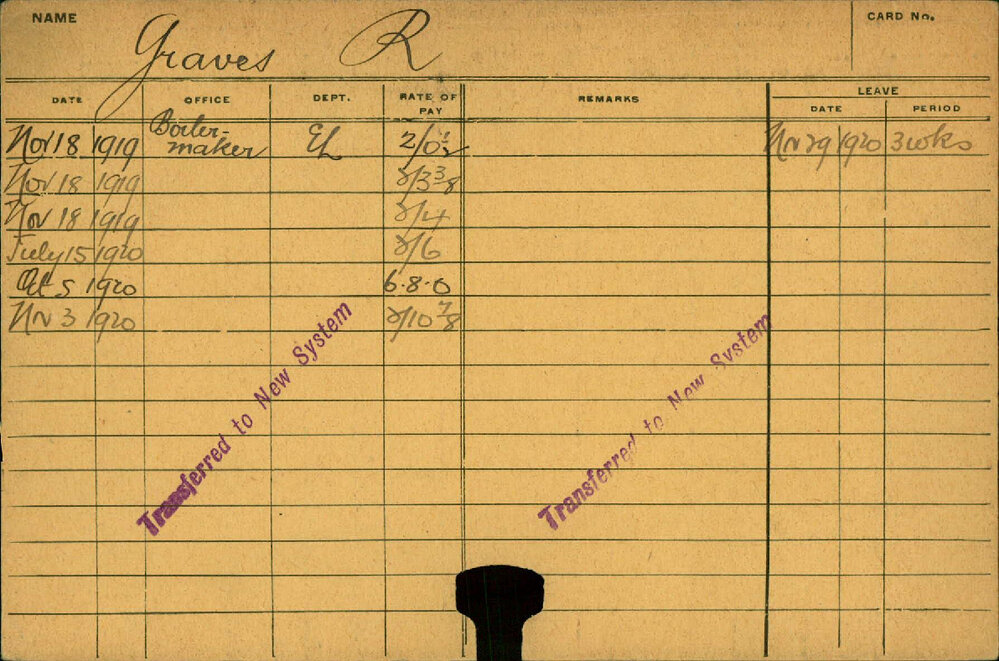 NAME
Graves R
CARD No.
DATE OFFICE DEPT. RATE OF PAY REMARKS LEAVE
DATE PERIOD
Nov 18 1919 Boiler-maker EL 2/0½ Nv 29 1920 3 wks
Nov 18 1919 2/3 3/8
Nov 18 1919 2/4
July 15 1920 2/6
Oct 5 1920 6.8.0
Nv 3 1920 2/10 7/8
Transferred to New System
Transferred to New System